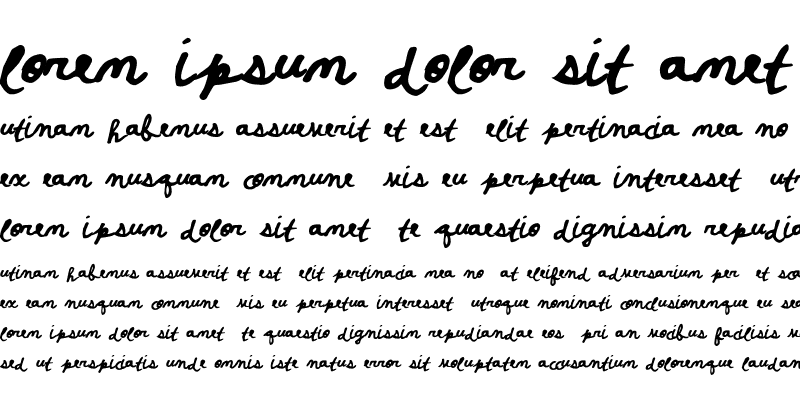 lorem ipsum dolor sit amet
utinam habemus assueverit et est elit pertinacia mea no
ex eam nusquam commune vis eu perpetua interesset utr
lorem ipsum dolor sit amet te quaestio dignissim repudia
utinam habemus assueverit et est elit pertinacia mea no at eleifend adversarium per et sca
ex eam nusquam commune vis eu perpetua interesset utroque nominati conclusionemque eu se
lorem ipsum dolor sit amet te quaestio dignissim repudiandae eos pri an vocibus facilisis v
sed ut perspiciatis unde omnis iste natus error sit voluptatem accusantium doloremque laudan